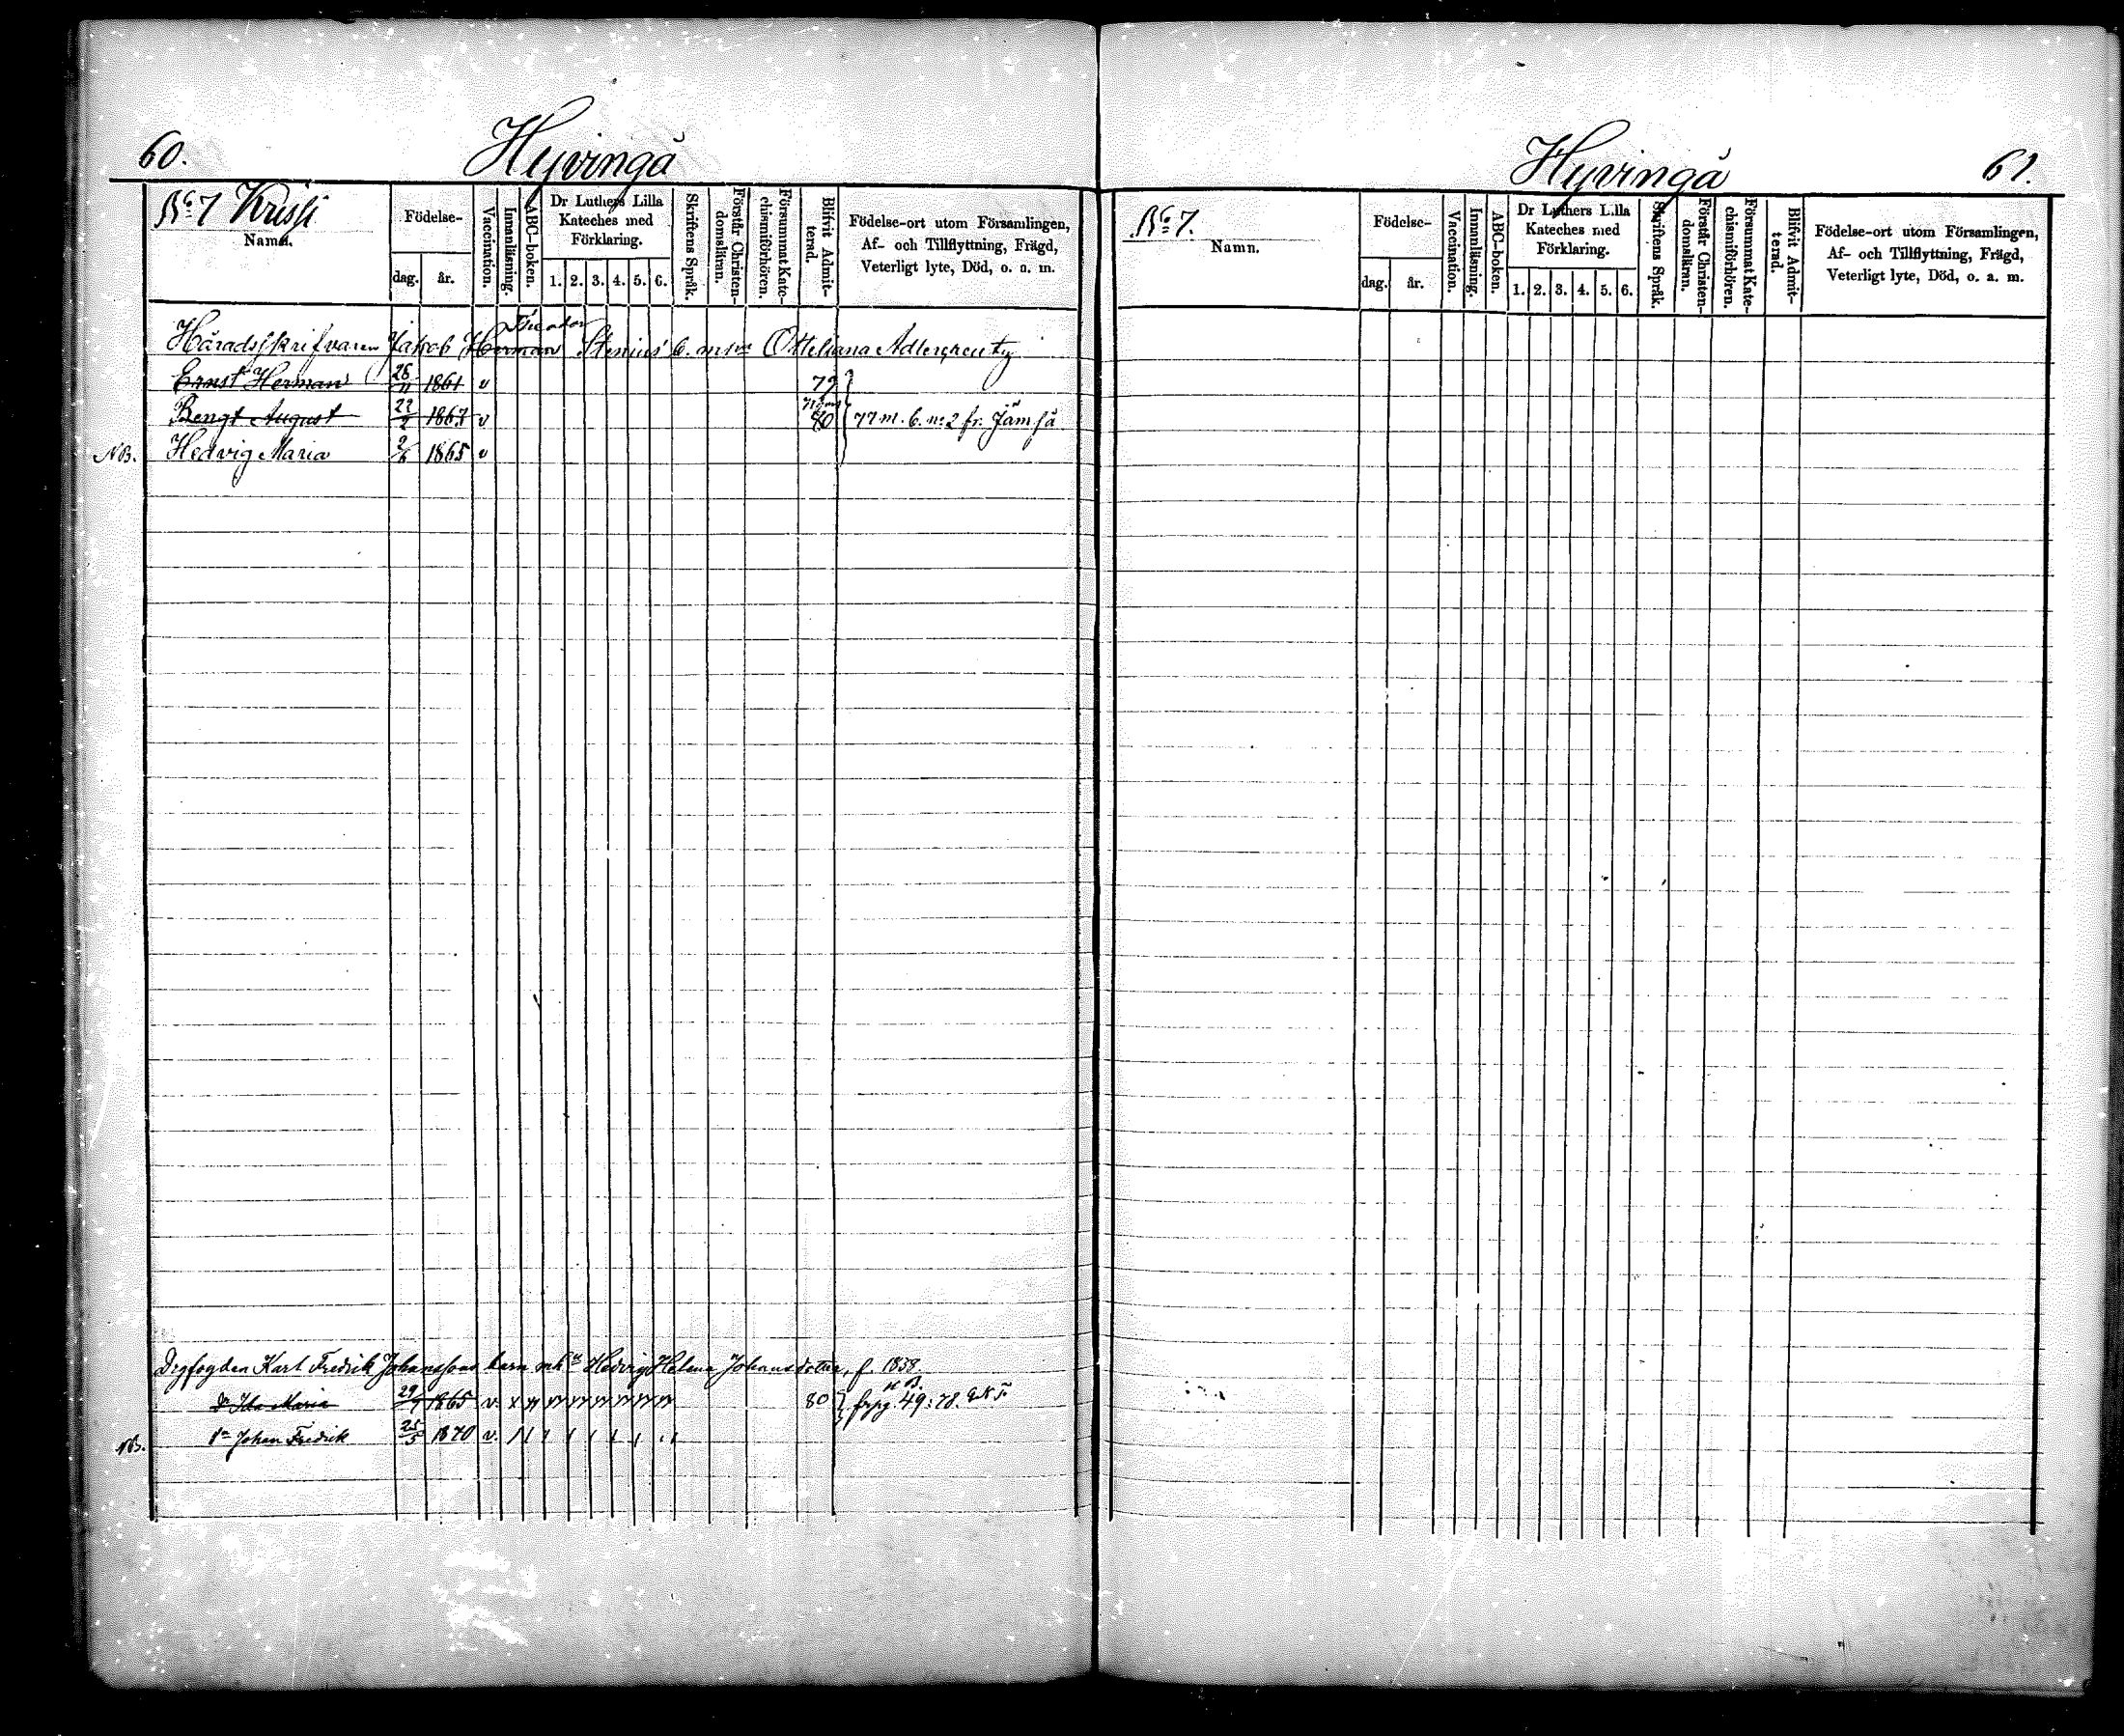 60. Hyvingå
No 7 Krissi
Namn.
Födelse-
dag. år.
Vaccination.
Innanläsning.
ABC-boken.
Dr Luthers Lilla
Kateches med
Förklaring.
1. 2. 3. 4. 5. 6.
Skriftens Språk.
Förstår Christen-
domsläran.
Försummat Kate-
chismiförhören.
Blifvit Admit-
terad.
Födelse-ort utom Församlingen,
Af- och Tillflyttning, Frägd,
Veterligt lyte, Död, o. a. m.
Theodor
Häradsskrifvaren Jakob Herman Stenius' b. m. Otteliana Adlercreutz
Ernst Herman 26/11 1861 v 79
Bengt August 22/2 1863 v 80 77 m. b. no 2 fr. Jämsä
NB. Hedvig Maria 2/6 1865 v
Dgfogden Karl Fredrik Johanssons barn m. h. u Hedvig Helena Johansdotter, f. 1838.
N B.
Dr Ida Maria 29/9 1865 v. 80 frpg. 49: 78.
NB. Sn Johan Fredrik 25/5 1870 v.
Hyvingå 61.
No 7.
Namn.
Födelse-
dag. år.
Vaccination.
Innanläsning.
ABC-boken.
Dr Luthers Lilla
Kateches med
Förklaring.
1. 2. 3. 4. 5. 6.
Skriftens Språk.
Förstår Christen-
domsläran.
Försummat Kate-
chismiförhören.
Blifvit Admit-
terad.
Födelse-ort utom Församlingen,
Af- och Tillflyttning, Frägd,
Veterligt lyte, Död, o. a. m.